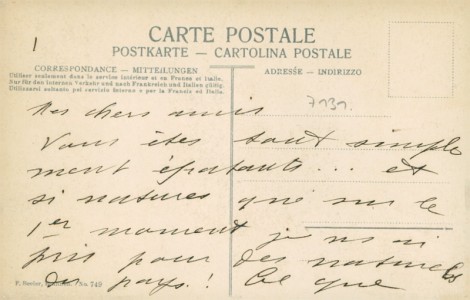 1
CARTE POSTALE
POSTKARTE — CARTOLINA POSTALE
CORRESPONDANCE — MITTEILUNGEN
ADRESSE — INDIRIZZO
Utiliser seulement dans le service intérieur et en France et Italie.
Nur für den internen Verkehr und nach Frankreich und Italien gültig.
Utilizzarsi soltanto pel servizio interno e per la Francia ed Italia.
7131.
Mes chers amis
Vous êtes tout simple
ment épatants... et
si natures que sur le
1er moment je vous ai
pris pour des naturels
du pays! Ce que
No. 749